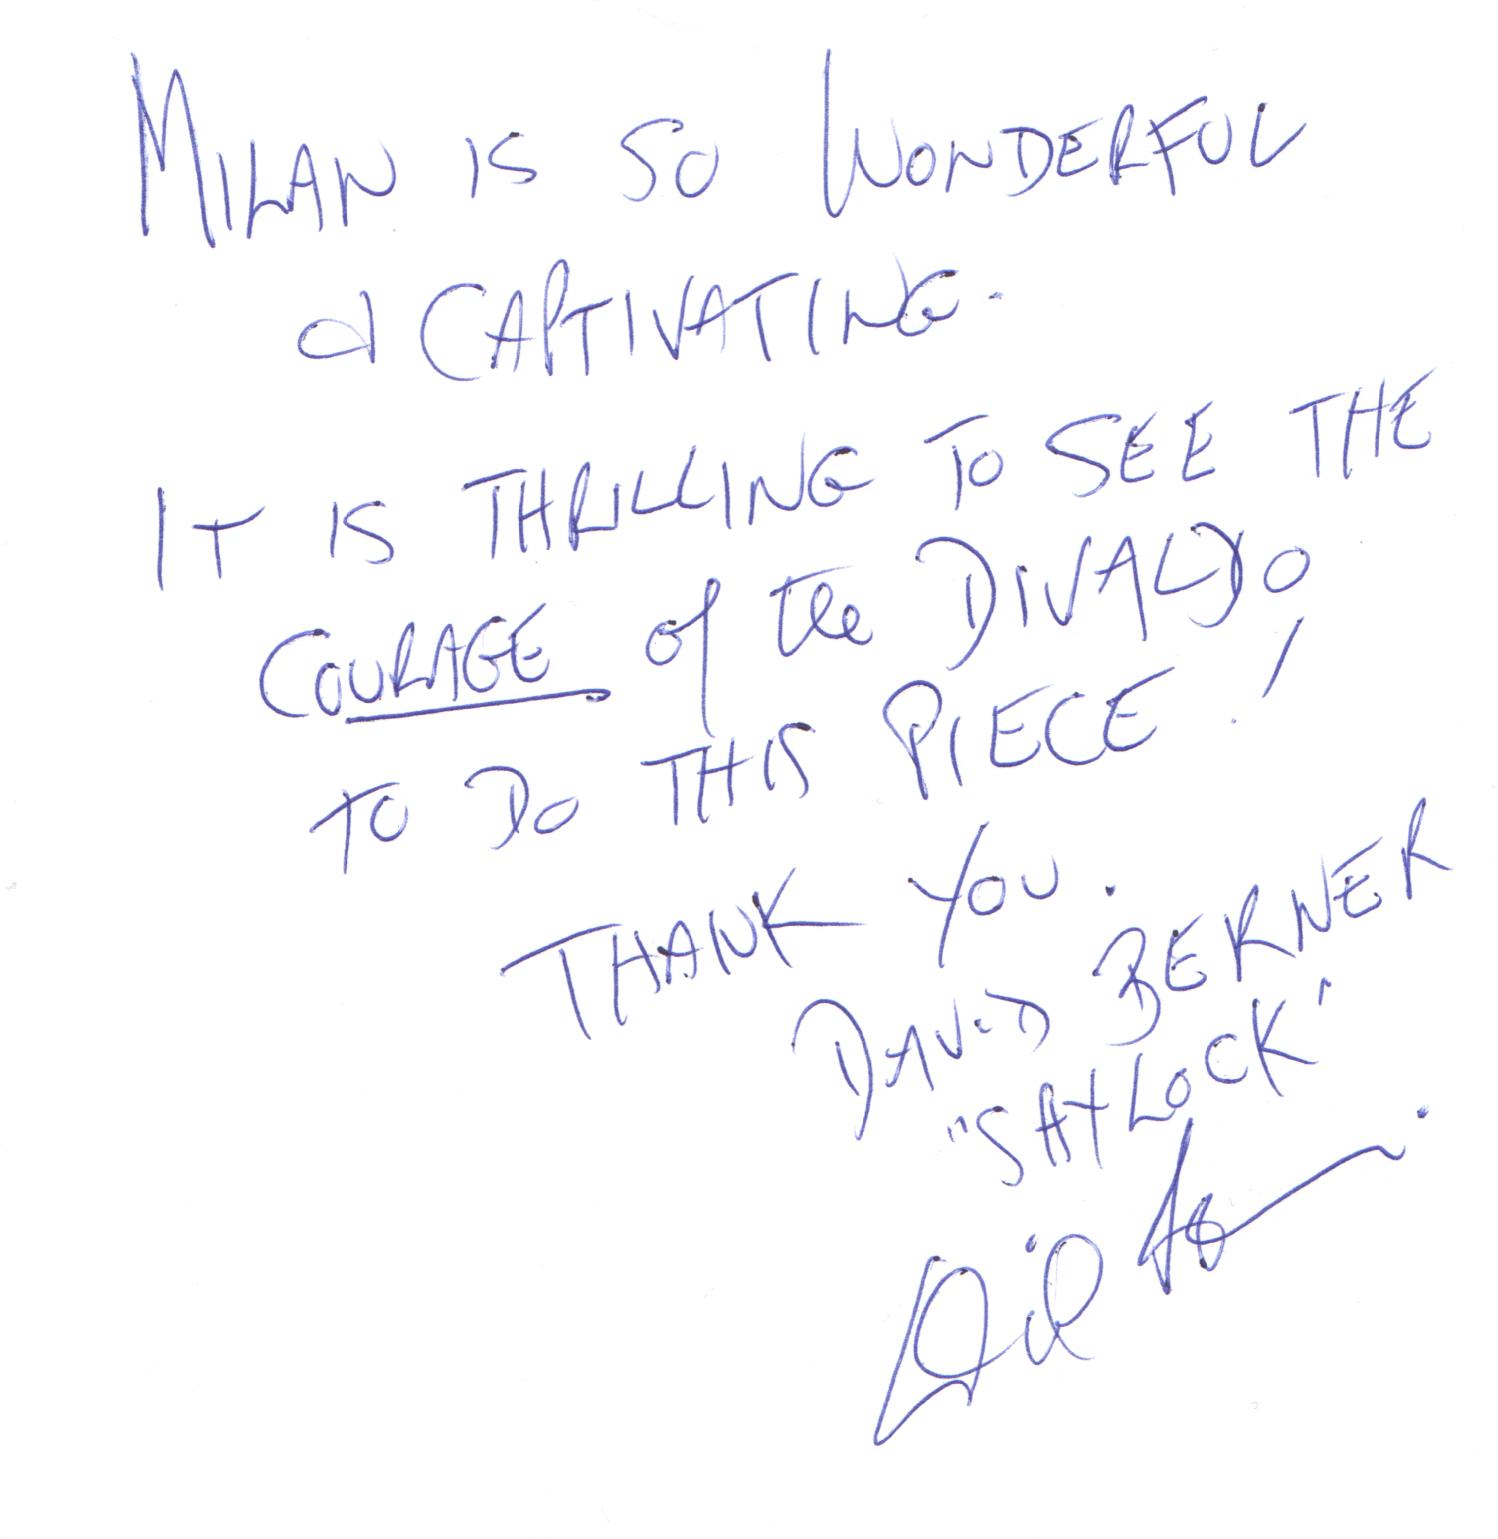 MILAN IS SO WONDERFUL
& CAPTIVATING.
IT IS THRILLING TO SEE THE
COURAGE of the DIVALDO
TO DO THIS PIECE!
THANK YOU.
DAViD BERNER
"SHYLOCK"